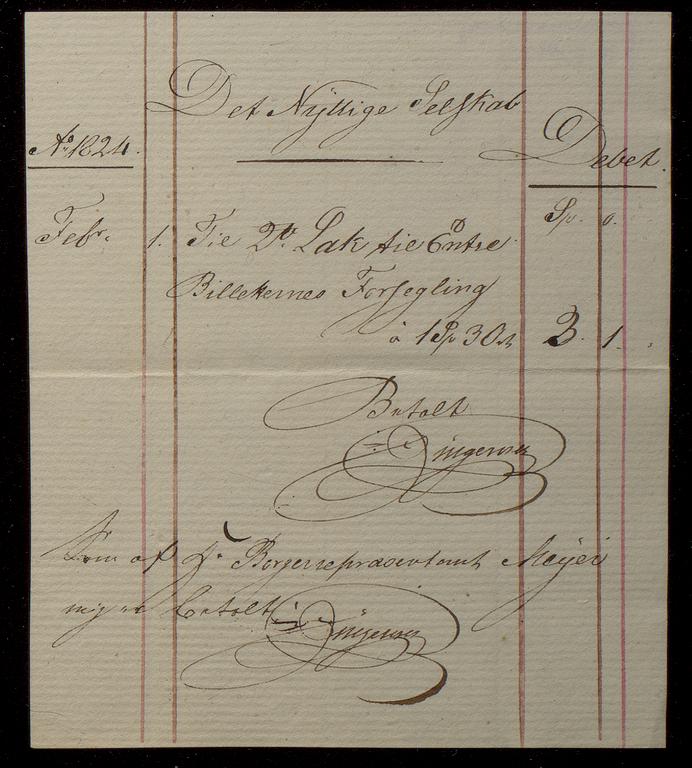 Det Nyttige Selskab
Aº 1824. Debet.
Sp. o.
Febr. 1. Tie 2 Lak tie Entre
Billetternes Forsegling
à 1 Sp 30 3. 1.
Betalt
Som af Hr Borgerrepræsentant Meyer
mig er betalt